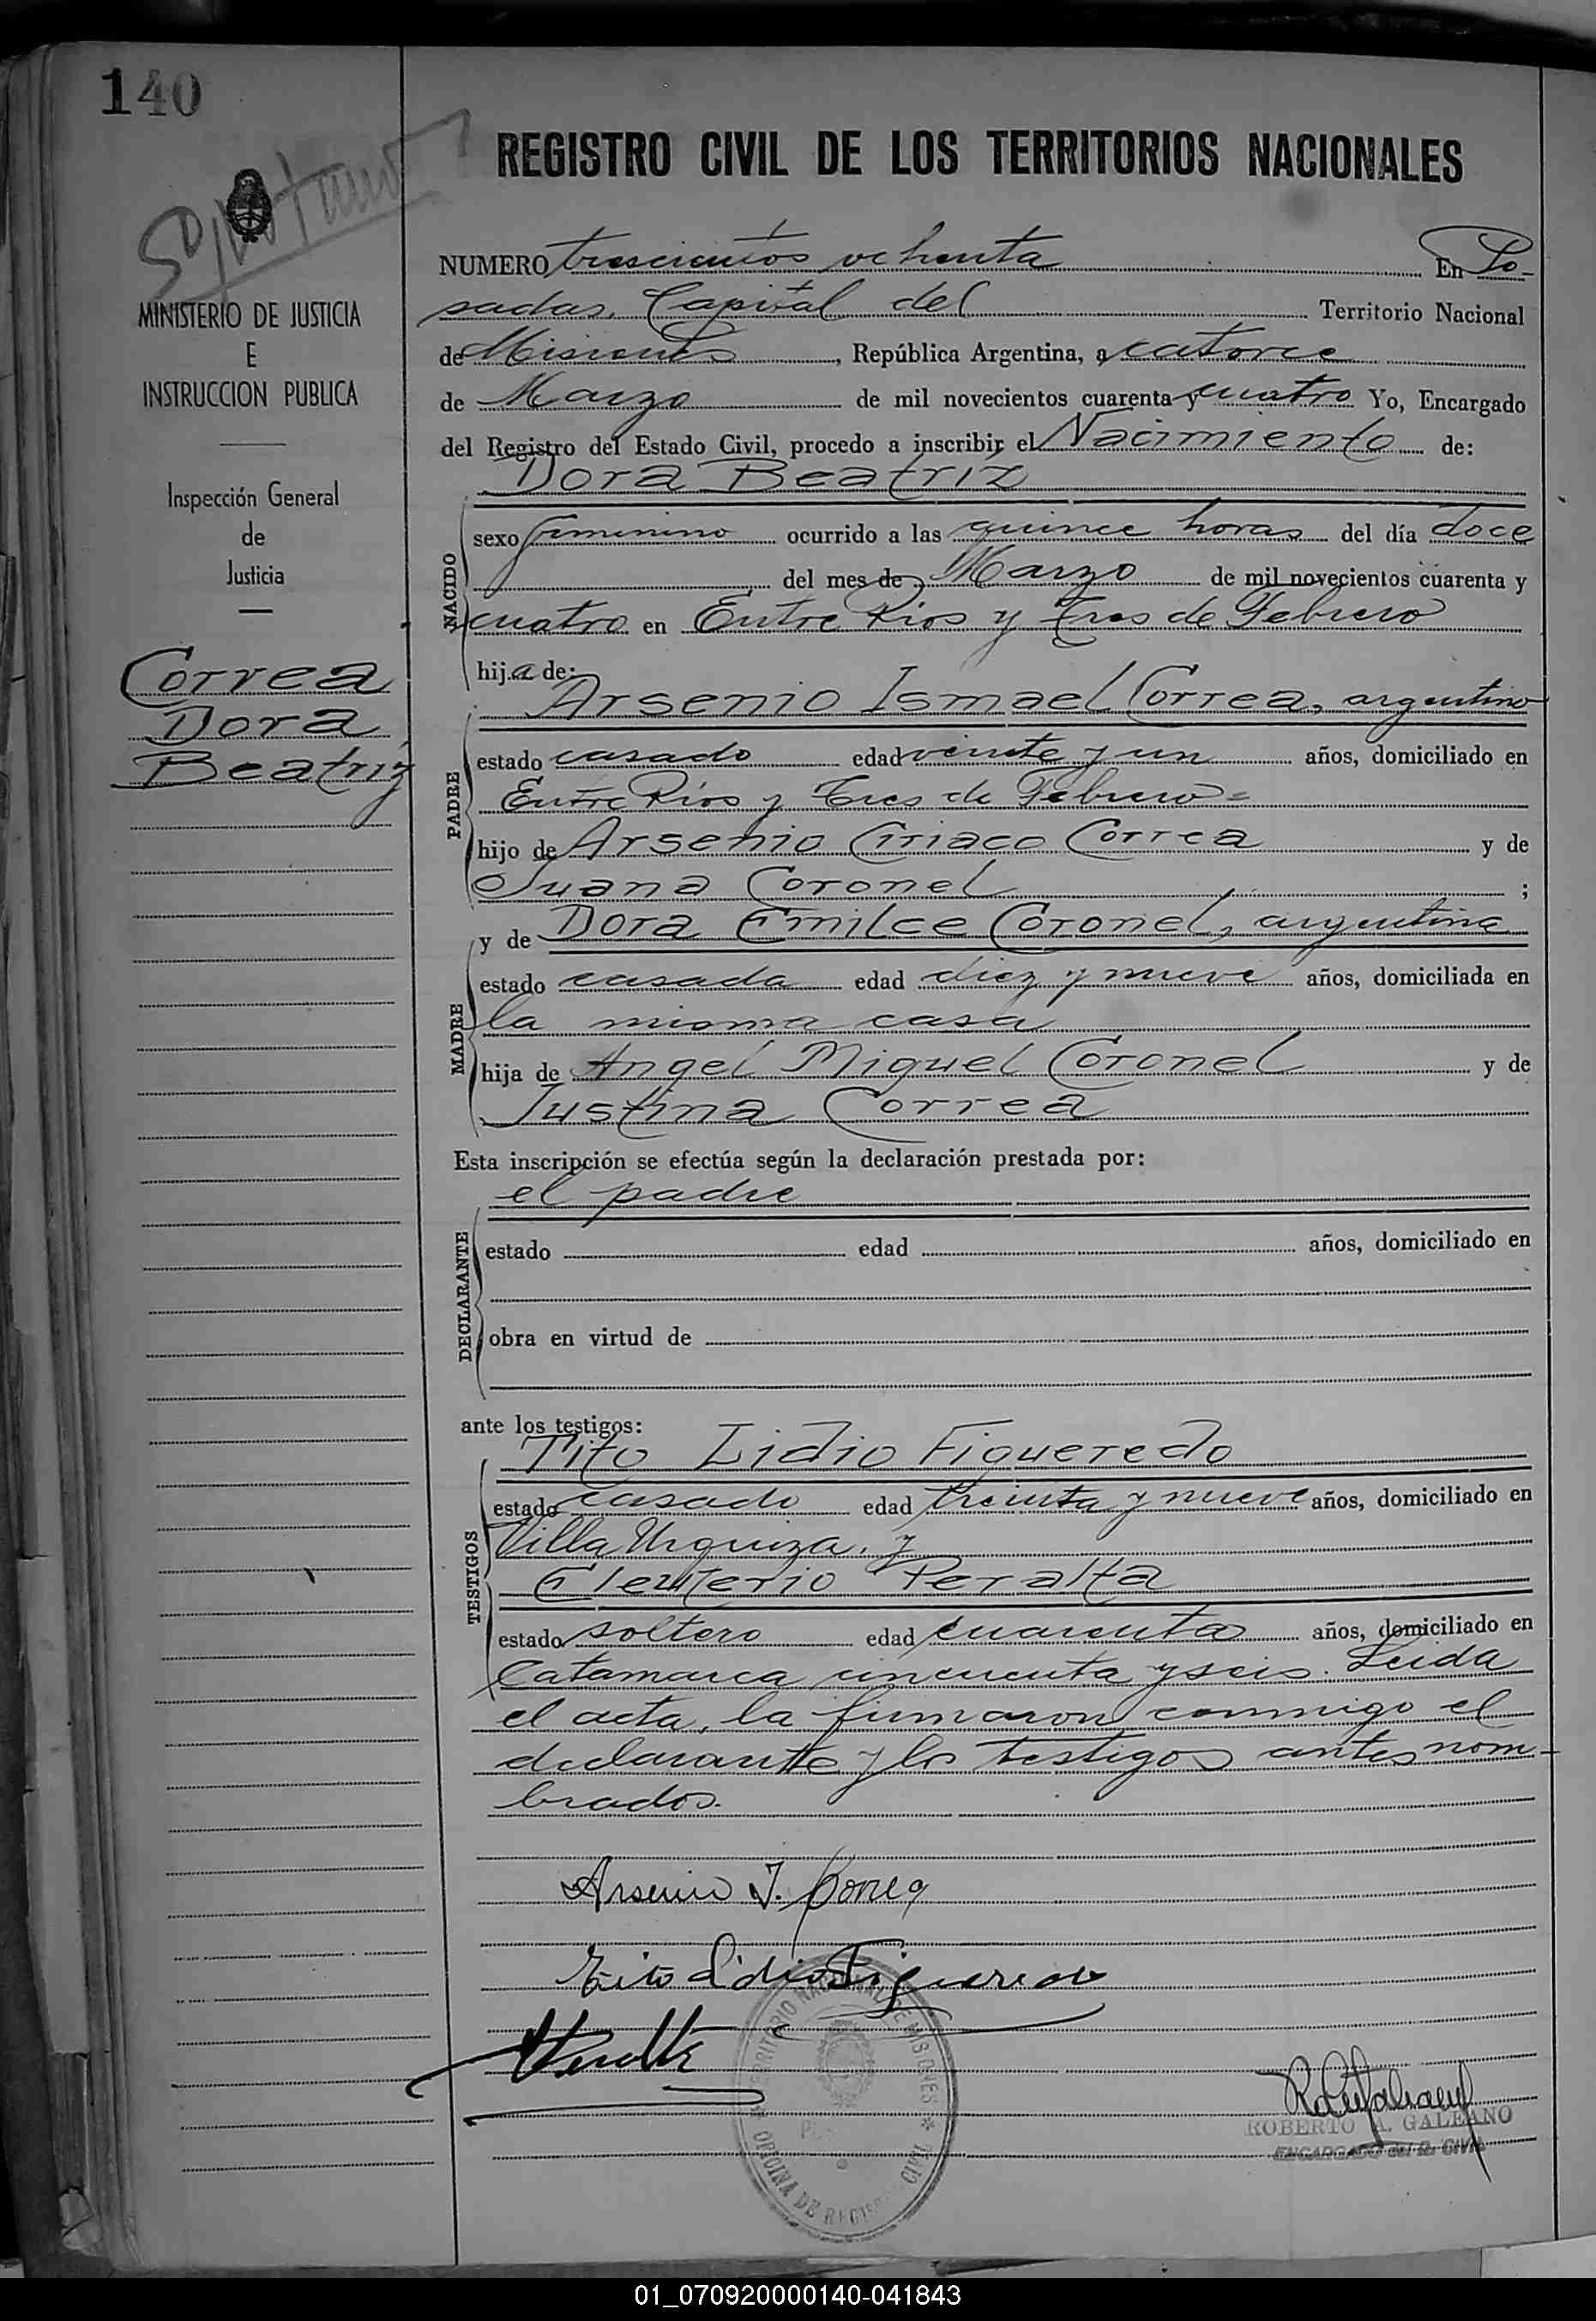 140
REGISTRO CIVIL DE LOS TERRITORIOS NACIONALES
MINISTERIO DE JUSTICIA
E
INSTRUCCION PUBLICA
Inspección General
de
Justicia
Correa
Dora
Beatriz
NUMERO trescientos ochenta En Po-
sadas, Capital del Territorio Nacional
de Misiones, República Argentina, a catorce
de Marzo de mil novecientos cuarenta y cuatro Yo, Encargado
del Registro del Estado Civil, procedo a inscribir el Nacimiento de:
Dora Beatriz
NACIDO
sexo femenino ocurrido a las quince horas del día doce
del mes de Marzo de mil novecientos cuarenta y
cuatro en Entre Rios y Tres de Febrero
hija de:
Arsenio Ismael Correa, argentino
PADRE
estado casado edad veinte y un años, domiciliado en
Entre Rios y Tres de Febrero=
hijo de Arsenio Ciriaco Correa y de
Juana Coronel ;
y de Dora Emilce Coronel, argentina
MADRE
estado casada edad diez y nueve años, domiciliada en
la misma casa
hija de Angel Miguel Coronel y de
Justina Correa
Esta inscripción se efectúa según la declaración prestada por:
el padre
DECLARANTE
estado edad años, domiciliado en
obra en virtud de
ante los testigos:
Tito Lidio Figueredo
TESTIGOS
estado casado edad treinta y nueve años, domiciliado en
Villa Urquiza. y
Eleuterio Peralta
estado soltero edad cuarenta años, domiciliado en
Catamarca cincuenta y seis. Leida
el acta, la firmaron conmigo el
declarante y los testigos antes nom-
brados.
Arsenio I. Correa
Tito Lidio Figueredo
TERRITORIO NACIONAL DE MISIONES
OFICINA DE REGISTRO CIVIL
ROBERTO A. GALEANO
ENCARGADO del R. CIVIL
01_070920000140-041843